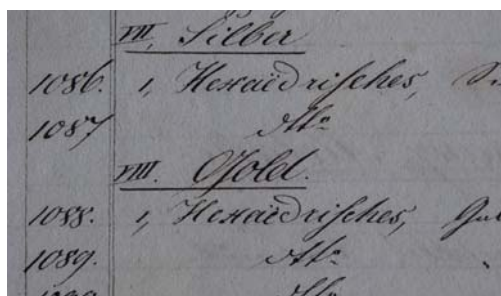 VII, Silber
1086. 1, Hexaëdrisches,
1087 dto
VIII. Gold.
1088. 1, Hexaëdrisches,
1089. dto
dto